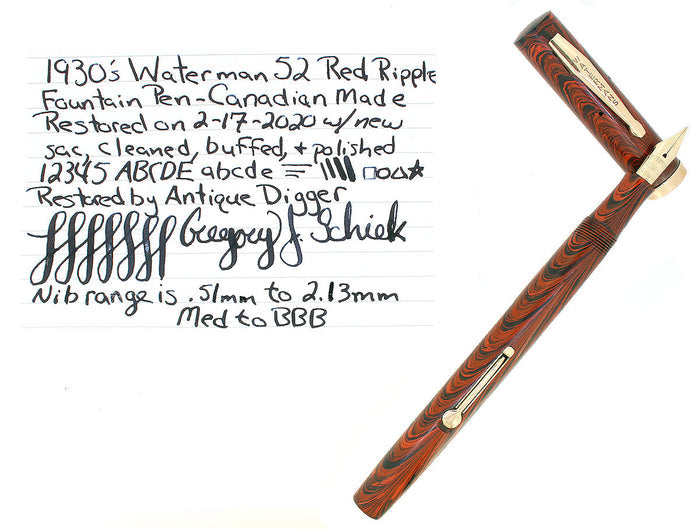 1930's Waterman 52 Red Ripple
Fountain Pen-Canadian Made
Restored on 2-17-2020 w/new
sac, cleaned, buffed, + polished
12345 ABCDE abcde
Restored by Antique Digger
Gregory J. Schiek
Nib range is .51mm to 2.13mm
Med to BBB
WATERMANS